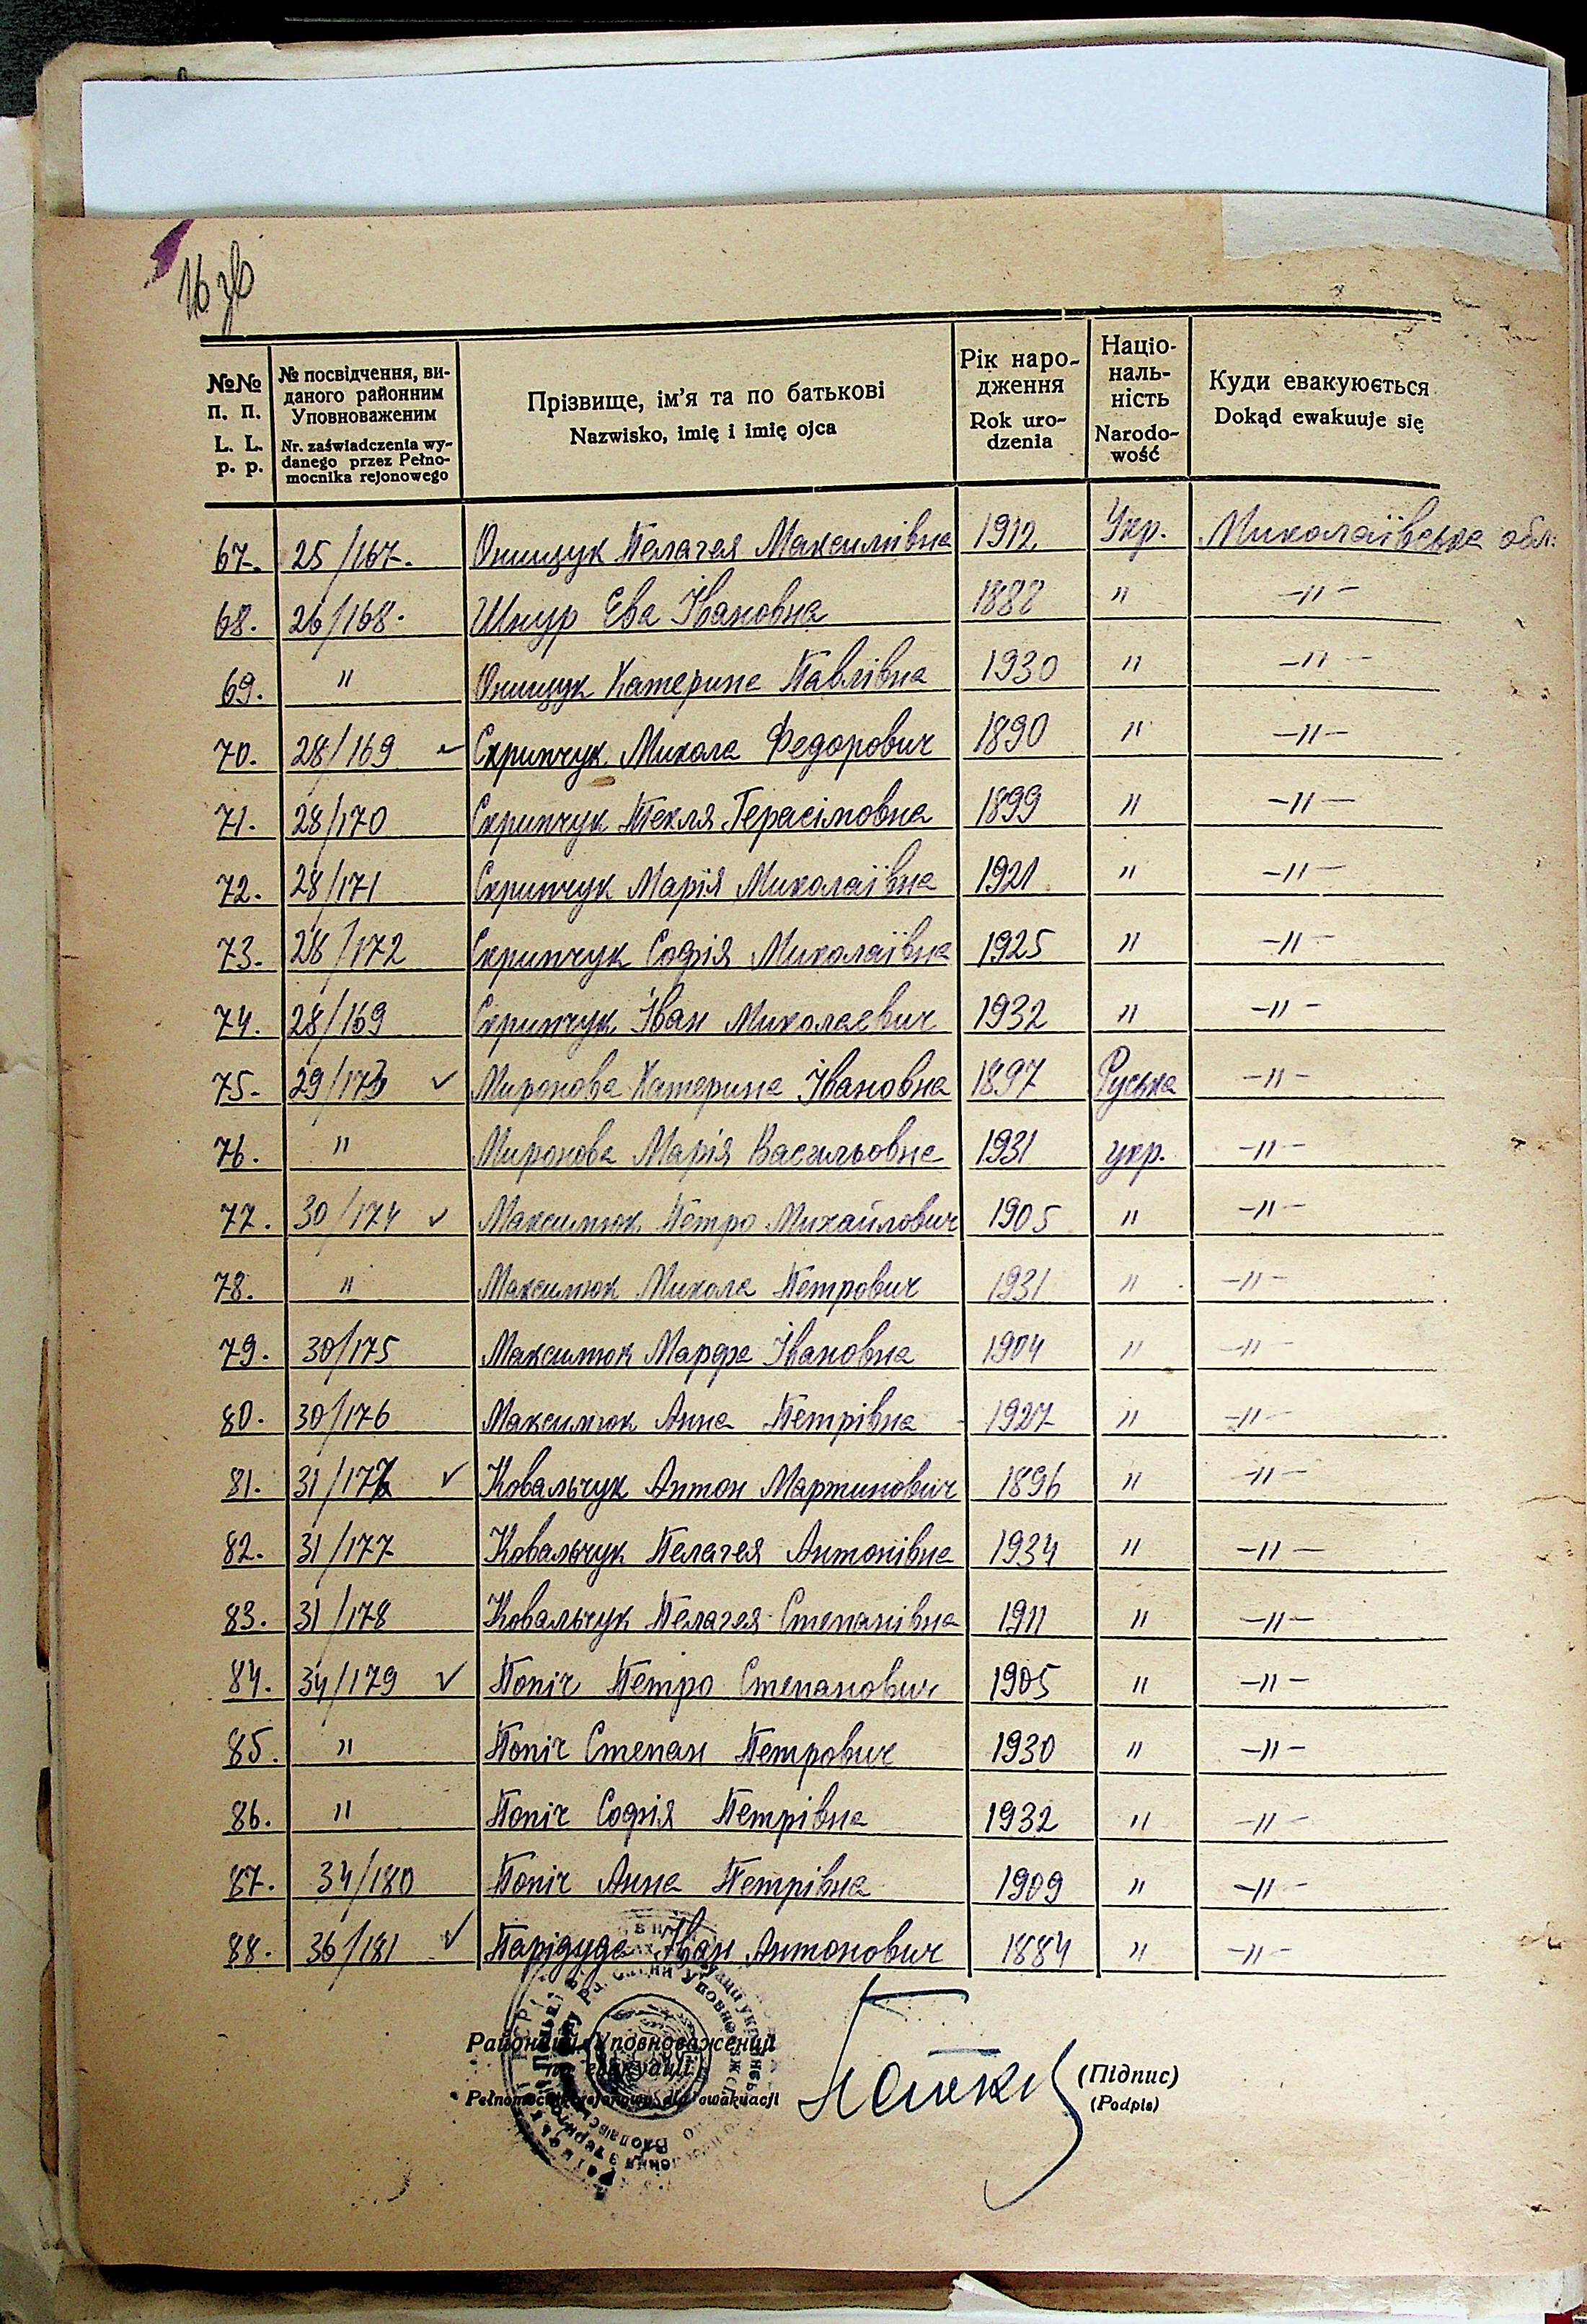 16 зв
№№ п. п.
L. L. p. p.
№ посвідчення, виданого районним Уповноваженим
Nr. zaświadczenia wydanego przez Pełnomocnika rejonowego
Прізвище, ім'я та по батькові
Nazwisko, imię i imię ojca
Рік народження
Rok urodzenia
Національність
Narodowość
Куди евакуюється
Dokąd ewakuuje się
67. 25/167. Онищук Пелагея Максимівна 1912 Укр. Миколаївська обл.
68. 26/168. Шнур Ева Івановна 1888 " -"-
69. " Онищук Катерина Павлівна 1930 " -"-
70. 28/169 Скрипчук Микола Федорович 1890 " -"-
71. 28/170 Скрипчук Текля Герасімовна 1899 " -"-
72. 28/171 Скрипчук Марія Миколаївна 1921 " -"-
73. 28/172 Скрипчук Софія Миколаївна 1925 " -"-
74. 28/169 Скрипчук Іван Миколаевич 1932 " -"-
75. 29/173 ✓ Миронова Катерина Івановна 1897 Руська -"-
76. " Миронова Марія Васильовна 1931 укр. -"-
77. 30/174 ✓ Максимюк Петро Михайлович 1905 " -"-
78. " Максимюк Микола Петрович 1931 " -"-
79. 30/175 Максимюк Марфа Івановна 1904 " -"-
80. 30/176 Максимюк Анна Петрівна 1927 " -"-
81. 31/177 ✓ Ковальчук Антон Мартинович 1896 " -"-
82. 31/177 Ковальчук Пелагея Антонівна 1934 " -"-
83. 31/178 Ковальчук Пелагея Степанівна 1911 " -"-
84. 34/179 ✓ Попіч Петро Степанович 1905 " -"-
85. " Попіч Степан Петрович 1930 " -"-
86. " Попіч Софія Петрівна 1932 " -"-
87. 34/180 Попіч Анна Петрівна 1909 " -"-
88. 36/181 ✓ Парідуда Іван Антонович 1884 " -"-
Районний Уповноважений
по евакуації
Pełnomocnik rejonowy dla ewakuacji
(Підпис)
(Podpis)